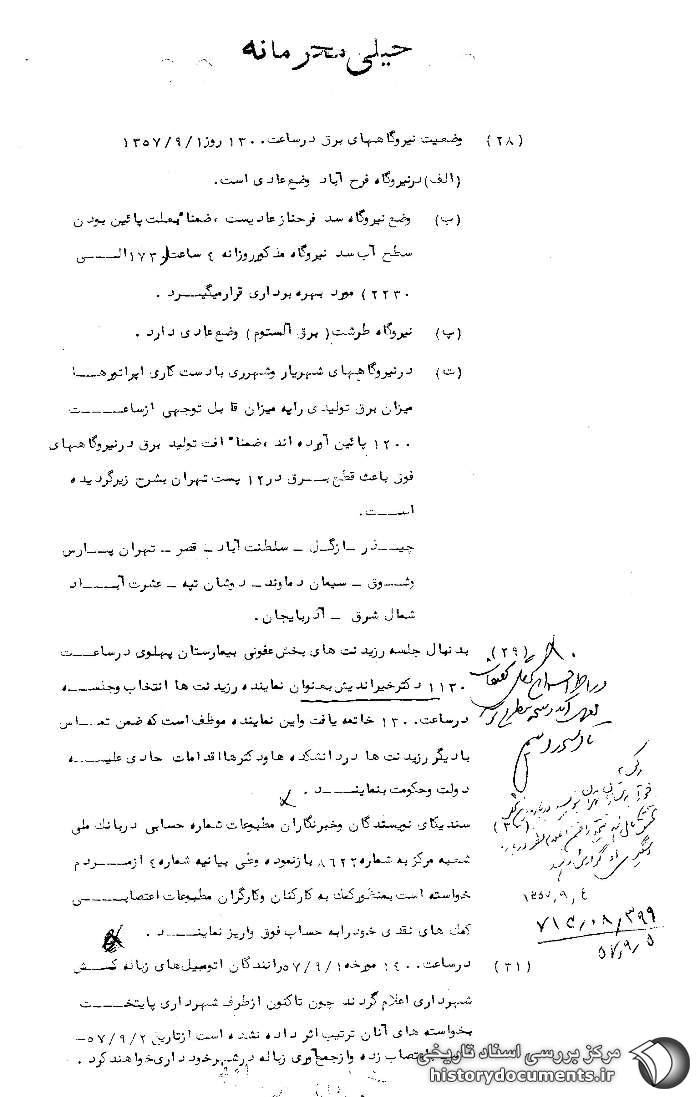 خیلی محرمانه
(۲۸) وضعیت نیروگاههای برق درساعت ۱۳۰۰ روز ۱۳۵۷/۹/۱
(الف) درنیروگاه فرح آباد وضع عادی است.
(ب) وضع نیروگاه سد فرحناز عادیست ،ضمنا" بعلت پائین بودن
سطح آب سد نیروگاه مذکور روزانه ۴ ساعت (۱۷۳۰ الـــی
۲۲۳۰) مورد بهره برداری قرارمیگیـــرد .
(پ) نیروگاه طرشت( برق آلستوم ) وضع عادی دارد .
(ت) درنیروگاههای شهریار وشهرری بادست کاری اپراتورهـــا
میزان برق تولیدی رابه میزان قابل توجهی ازساعـــت
۱۲۰۰ پائین آورده اند ،ضمنا" افت تولید برق درنیروگاههای
فوق باعث قطع بـــرق در۱۲ پست تهران بشرح زیرگردیده
اســـت.
چیـــذر ـ ازگـل ـ سلطنت آباد ـ قصر ـ تهران پـــارس
وثـــوق ـ سیمان دماوند ـ دوشان تپه ـ عشرت آبـــاد
شمال شرق ـ آذربایجان .
(۲۹) بدنبال جلسه رزیدنت های بخش عفونی بیمارستان پهلوی درساعـــت
۱۱۳۰ دکترخیراندیش بعنوان نماینده رزیدنت ها انتخاب وجلســـه
درساعت ۱۳۰۰ خاتمه یافت واین نماینده موظف است که ضمن تمـــاس
بادیگر رزیدنت ها دردانشکده هاودکترهااقدامات حادی علیـــه
دولت وحکومت بنماینـــد .
(۳۰) سندیکای نویسندگان وخبرنگاران مطبوعات شماره حسابی دربانک ملی
شعبه مرکز به شماره ۸۶۲۲ بازنموده وطی بیانیه شماره ۴ ازمـــردم
خواسته است بمنظورکمک به کارکنان وکارگران مطبوعات اعتصابـــی
کمک های نقدی خودرابه حساب فوق واریز نماینـــد .
۱۳۵۷,۹,۴
۷۱۵/۰۸/۳۹۹
۵۷,۹/۵
(۳۱) درساعت ۱۴۰۰ مورخه ۵۷/۹/۱ رانندگان اتومبیل های زباله کـــش
شهرداری اعلام کردند چون تاکنون ازطرف شهرداری پایتخـــت
بخواسته های آنان ترتیب اثر داده نشده است ازتاریخ ۵۷/۹/۲ـ
اعتصاب زده وازجمع آوری زباله درشهرخودداری خواهندکرد .
مرکز بررسی اسناد تاریخی
historydocuments.ir